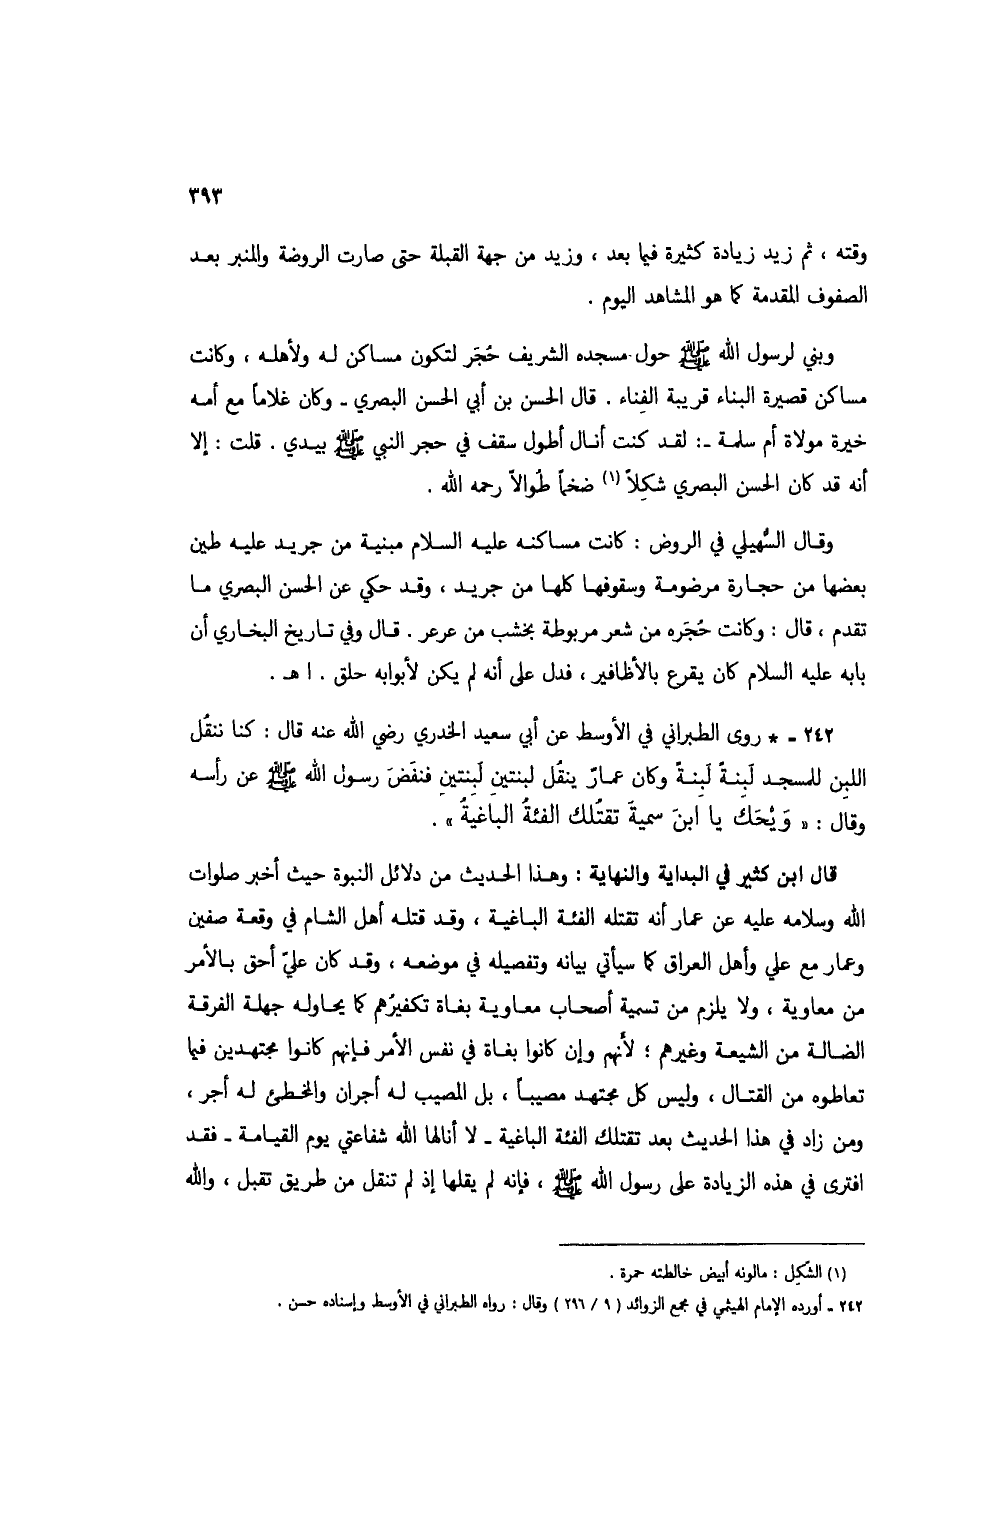 ٣٩٣
وقته ، ثم زيد زيادة كثيرة فيما بعد ، وزيد من جهة القبلة حتى صارت الروضة والمنبر بعد
الصفوف المقدمة كما هو المشاهد اليوم .
وبني لرسول الله ﷺ حول مسجده الشريف حُجَر لتكون مساكن له ولأهله ، وكانت
مساكن قصيرة البناء قريبة الفِناء . قال الحسن بن أبي الحسن البصري ـ وكان غلاماً مع أمه
خيرة مولاة أم سلمة ـ: لقد كنت أنال أطول سقف في حجر النبي ﷺ بيدي . قلت : إلا
أنه قد كان الحسن البصري شكِلاً (١) ضخماً طُوالاً رحمه الله .
وقال السُّهيلي في الروض : كانت مساكنه عليه السلام مبنية من جريد عليه طين
بعضها من حجارة مرضومة وسقوفها كلها من جريد ، وقد حكي عن الحسن البصري ما
تقدم ، قال : وكانت حُجَره من شعر مربوطة بخشب من عرعر . قال وفي تاريخ البخاري أن
بابه عليه السلام كان يقرع بالأظافير ، فدل على أنه لم يكن لأبوابه حلق . ا هـ .
٢٤٢ ـ * روى الطبراني في الأوسط عن أبي سعيد الخدري رضي الله عنه قال : كنا ننقُل
اللبِن للمسجد لَبِنةً لَبِنةً وكان عمارٌ ينقُل لبنتينِ لَبِنتينِ فنفَضَ رسول الله ﷺ عن رأسه
وقال : « وَيْحَك يا ابنَ سميةَ تقتُلك الفئةُ الباغيةُ » .
قال ابن كثير في البداية والنهاية : وهذا الحديث من دلائل النبوة حيث أخبر صلوات
الله وسلامه عليه عن عمار أنه تقتله الفئة الباغية ، وقد قتله أهل الشام في وقعة صفين
وعمار مع علي وأهل العراق كما سيأتي بيانه وتفصيله في موضعه ، وقد كان عليّ أحق بالأمر
من معاوية ، ولا يلزم من تسمية أصحاب معاوية بغاة تكفيرُهم كما يحاوله جهلة الفرقة
الضالة من الشيعة وغيرهم ؛ لأنهم وإن كانوا بغاة في نفس الأمر فإنهم كانوا مجتهدين فيما
تعاطوه من القتال ، وليس كل مجتهد مصيباً ، بل المصيب له أجران والمخطئ له أجر ،
ومن زاد في هذا الحديث بعد تقتلك الفئة الباغية ـ لا أنالها الله شفاعتي يوم القيامة ـ فقد
افترى في هذه الزيادة على رسول الله ﷺ ، فإنه لم يقلها إذ لم تنقل من طريق تقبل ، والله
(١) الشّكِل : مالونه أبيض خالطته حمرة .
٢٤٢ ـ أورده الإمام الهيثمي في مجمع الزوائد ( ٩ / ٢٩٦ ) وقال : رواه الطبراني في الأوسط وإسناده حسن .